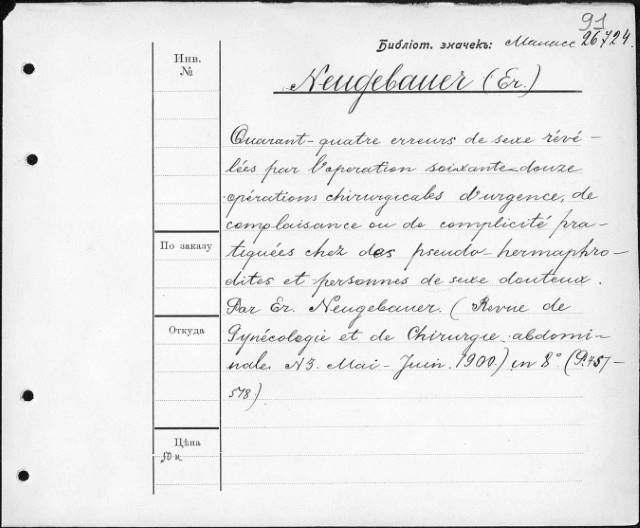 91
Библіот. значекъ: Манасс 26724.
Инв.
№
Neugebauer (Er.)
Quarant-quatre erreurs de sexe révé-
lées par l'operation soixante-douze
opérations chirurgicales d'urgence, de
complaisance ou de complicité pra-
tiquées chez des pseudo-hermaphro-
dites et personnes de sexe douteux.
Par Er. Neugebauer. (Revue de
Gynécologie et de Chirurgie abdomi-
nale. N3. Mai-Juin. 1900) in 8° (P.457-
578)
По заказу
Откуда
Цѣна
50 к